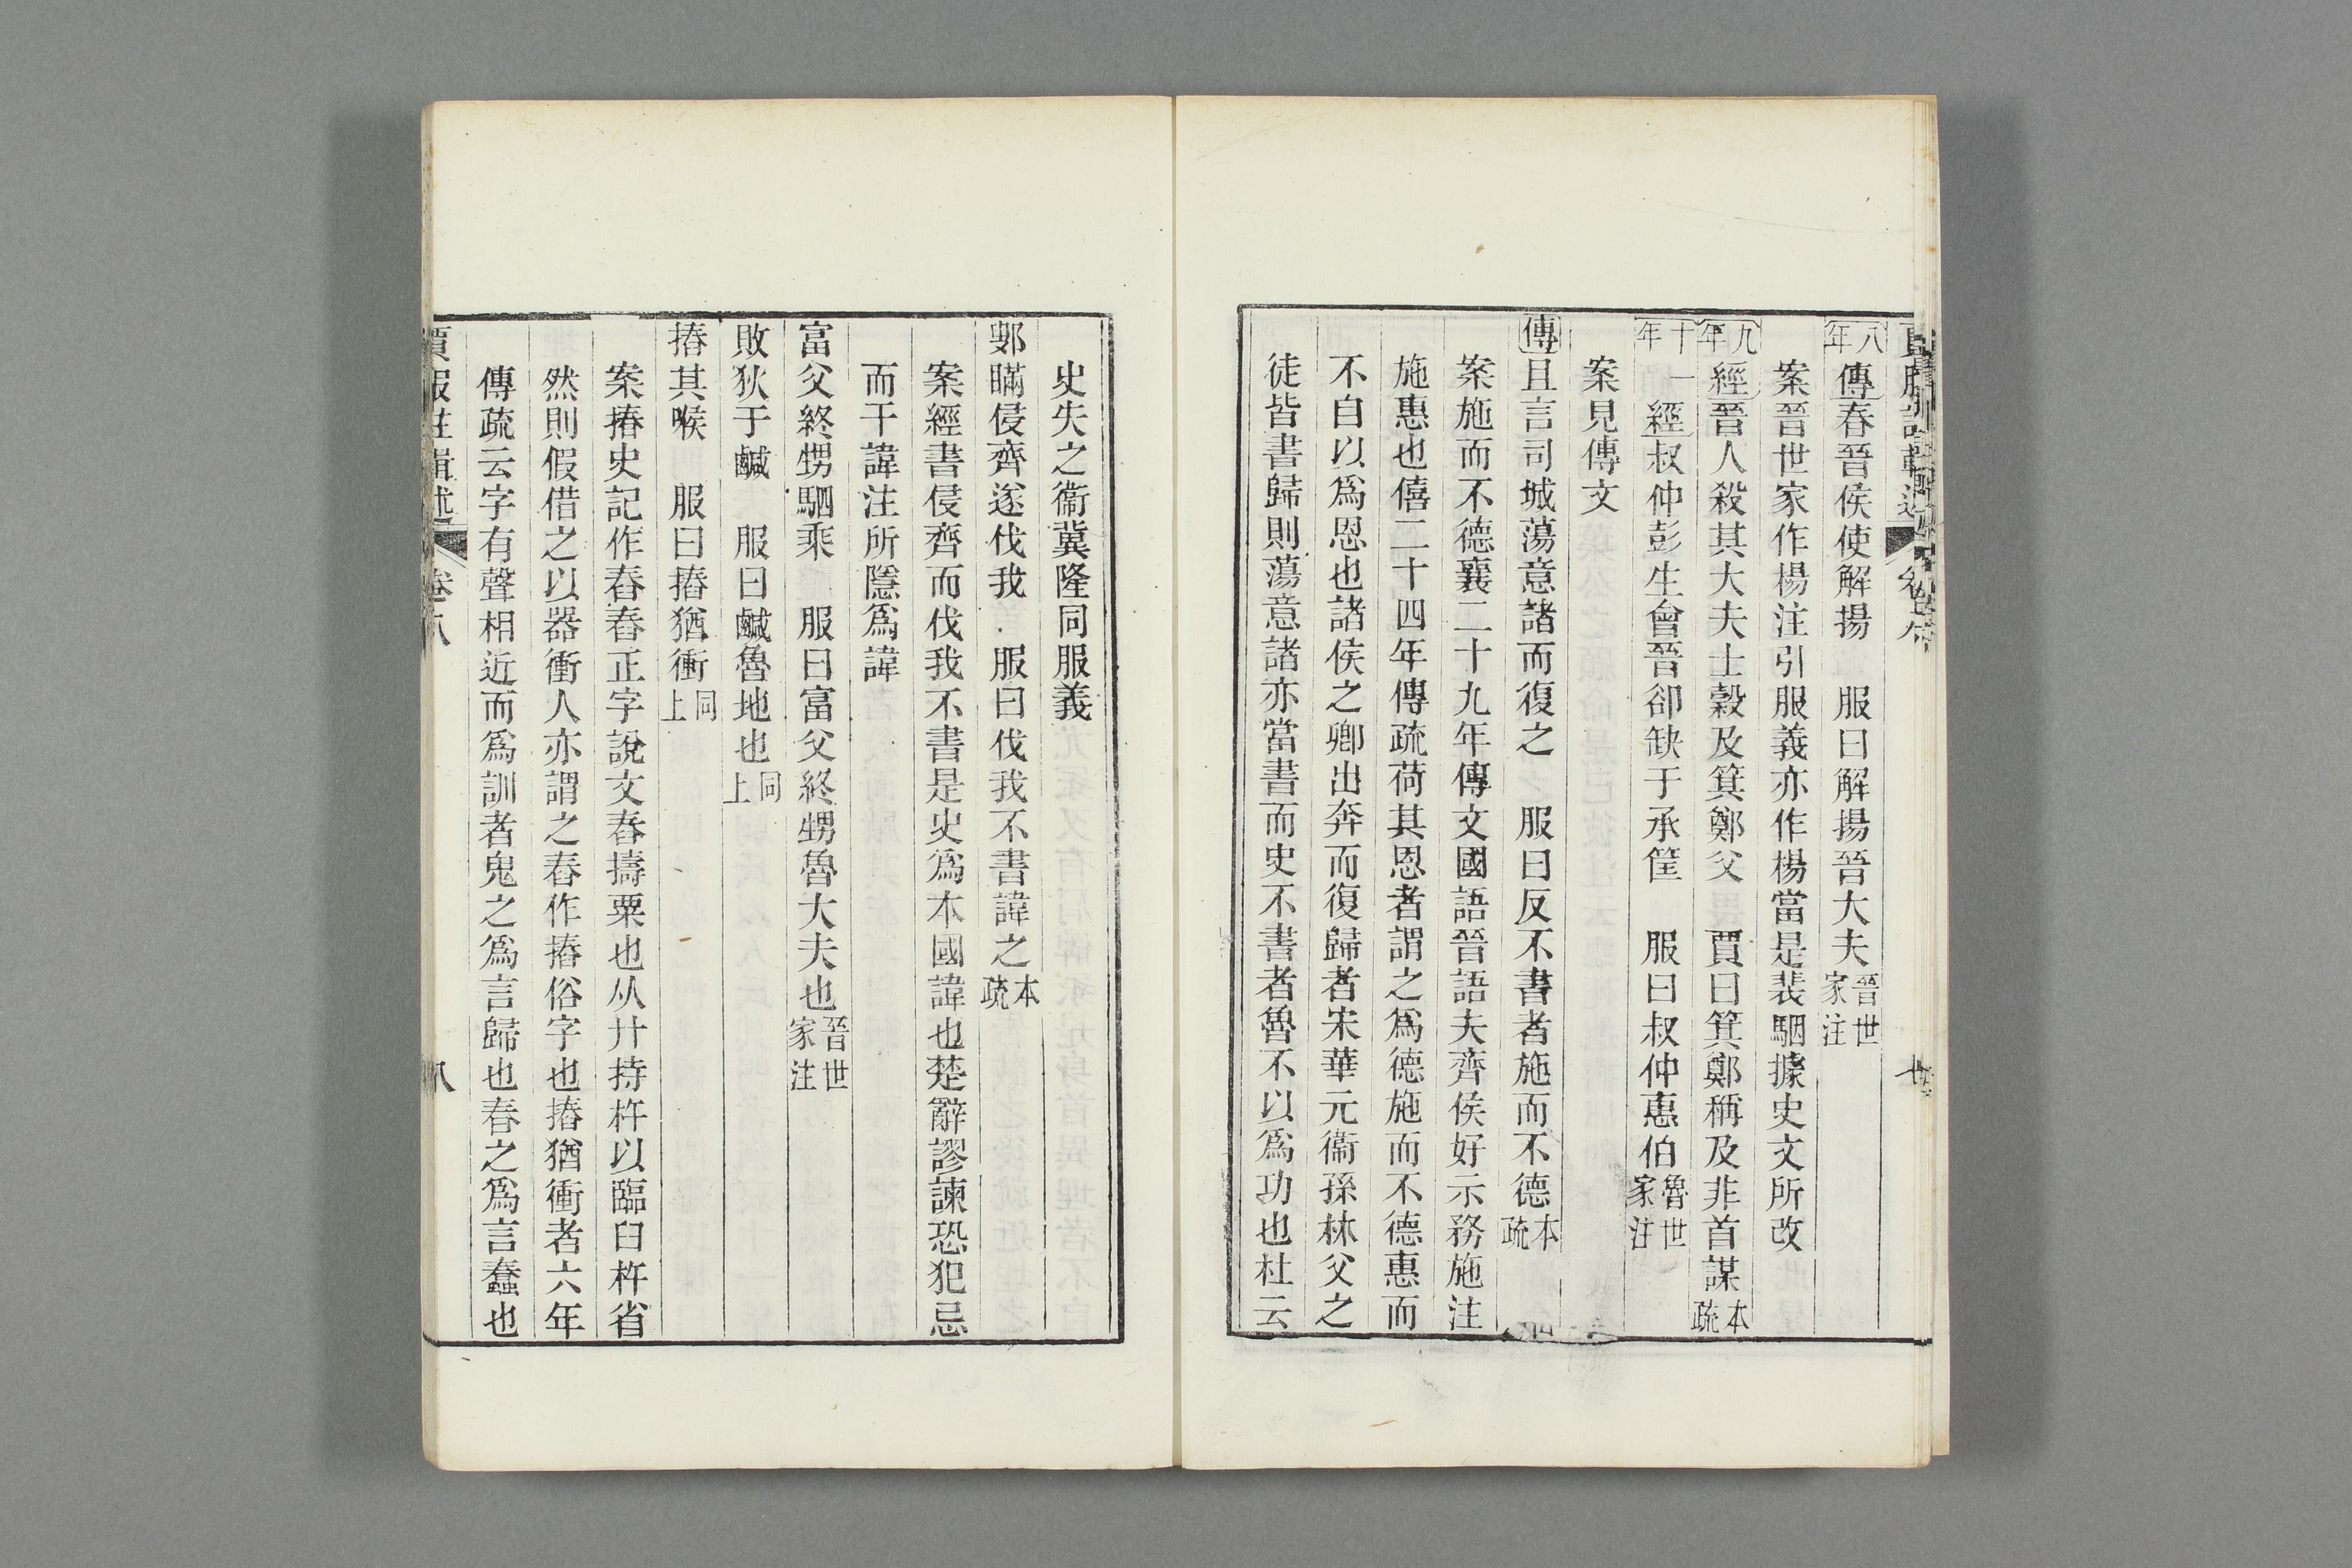 八年傳春晉侯使解揚　服曰解揚晉大夫晉世家注
案晉世家作楊注引服義亦作楊當是裴駰據史文所改
九年經晉人殺其大夫士縠及箕鄭父　賈曰箕鄭稱及非首謀本疏
十一年經叔仲彭生會晉卻缺于承筐　服曰叔仲惠伯魯世家注
案見傳文
傳且言司城蕩意諸而復之　服曰反不書者施而不德本疏
案施而不德襄二十九年傳文國語晉語夫齊侯好示務施注
施惠也僖二十四年傳疏荷其恩者謂之爲德施而不德惠而
不自以爲恩也諸侯之卿出奔而復歸者宋華元衞孫林父之
徒皆書歸則蕩意諸亦當書而史不書者魯不以爲功也杜云
史失之衞冀隆同服義
鄋瞞侵齊遂伐我　服曰伐我不書諱之本疏
案經書侵齊而伐我不書是史爲本國諱也楚辭謬諫恐犯忌
而干諱注所隱爲諱
富父終甥駟乘　服曰富父終甥魯大夫也魯世家注
敗狄于鹹　服曰鹹魯地也同上
摏其喉　服曰摏猶衝同上
案摏史記作舂舂正字說文舂擣粟也从廾持杵以臨臼杵省
然則假借之以器衝人亦謂之舂作摏俗字也摏猶衝者六年
傳疏云字有聲相近而爲訓者鬼之爲言歸也春之爲言蠢也
賈服注輯述　卷八　八